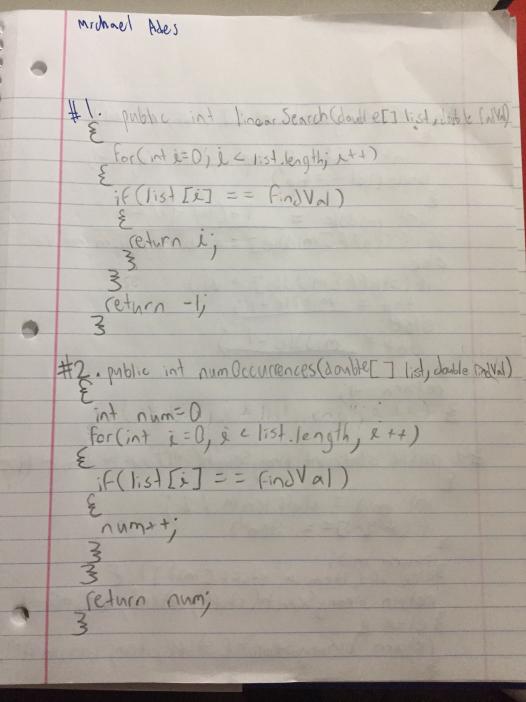 Michael Ades
#1. public int linearSearch(double[] list, double findVal)
{
for(int i=0; i < list.length; i++)
{
if(list[i] == findVal)
{
return i;
}
}
return -1;
}
#2. public int numOccurrences(double[] list, double findVal)
{
int num=0
for(int i=0, i < list.length, i++)
{
if(list[i] == findVal)
{
num++;
}
}
return num;
}